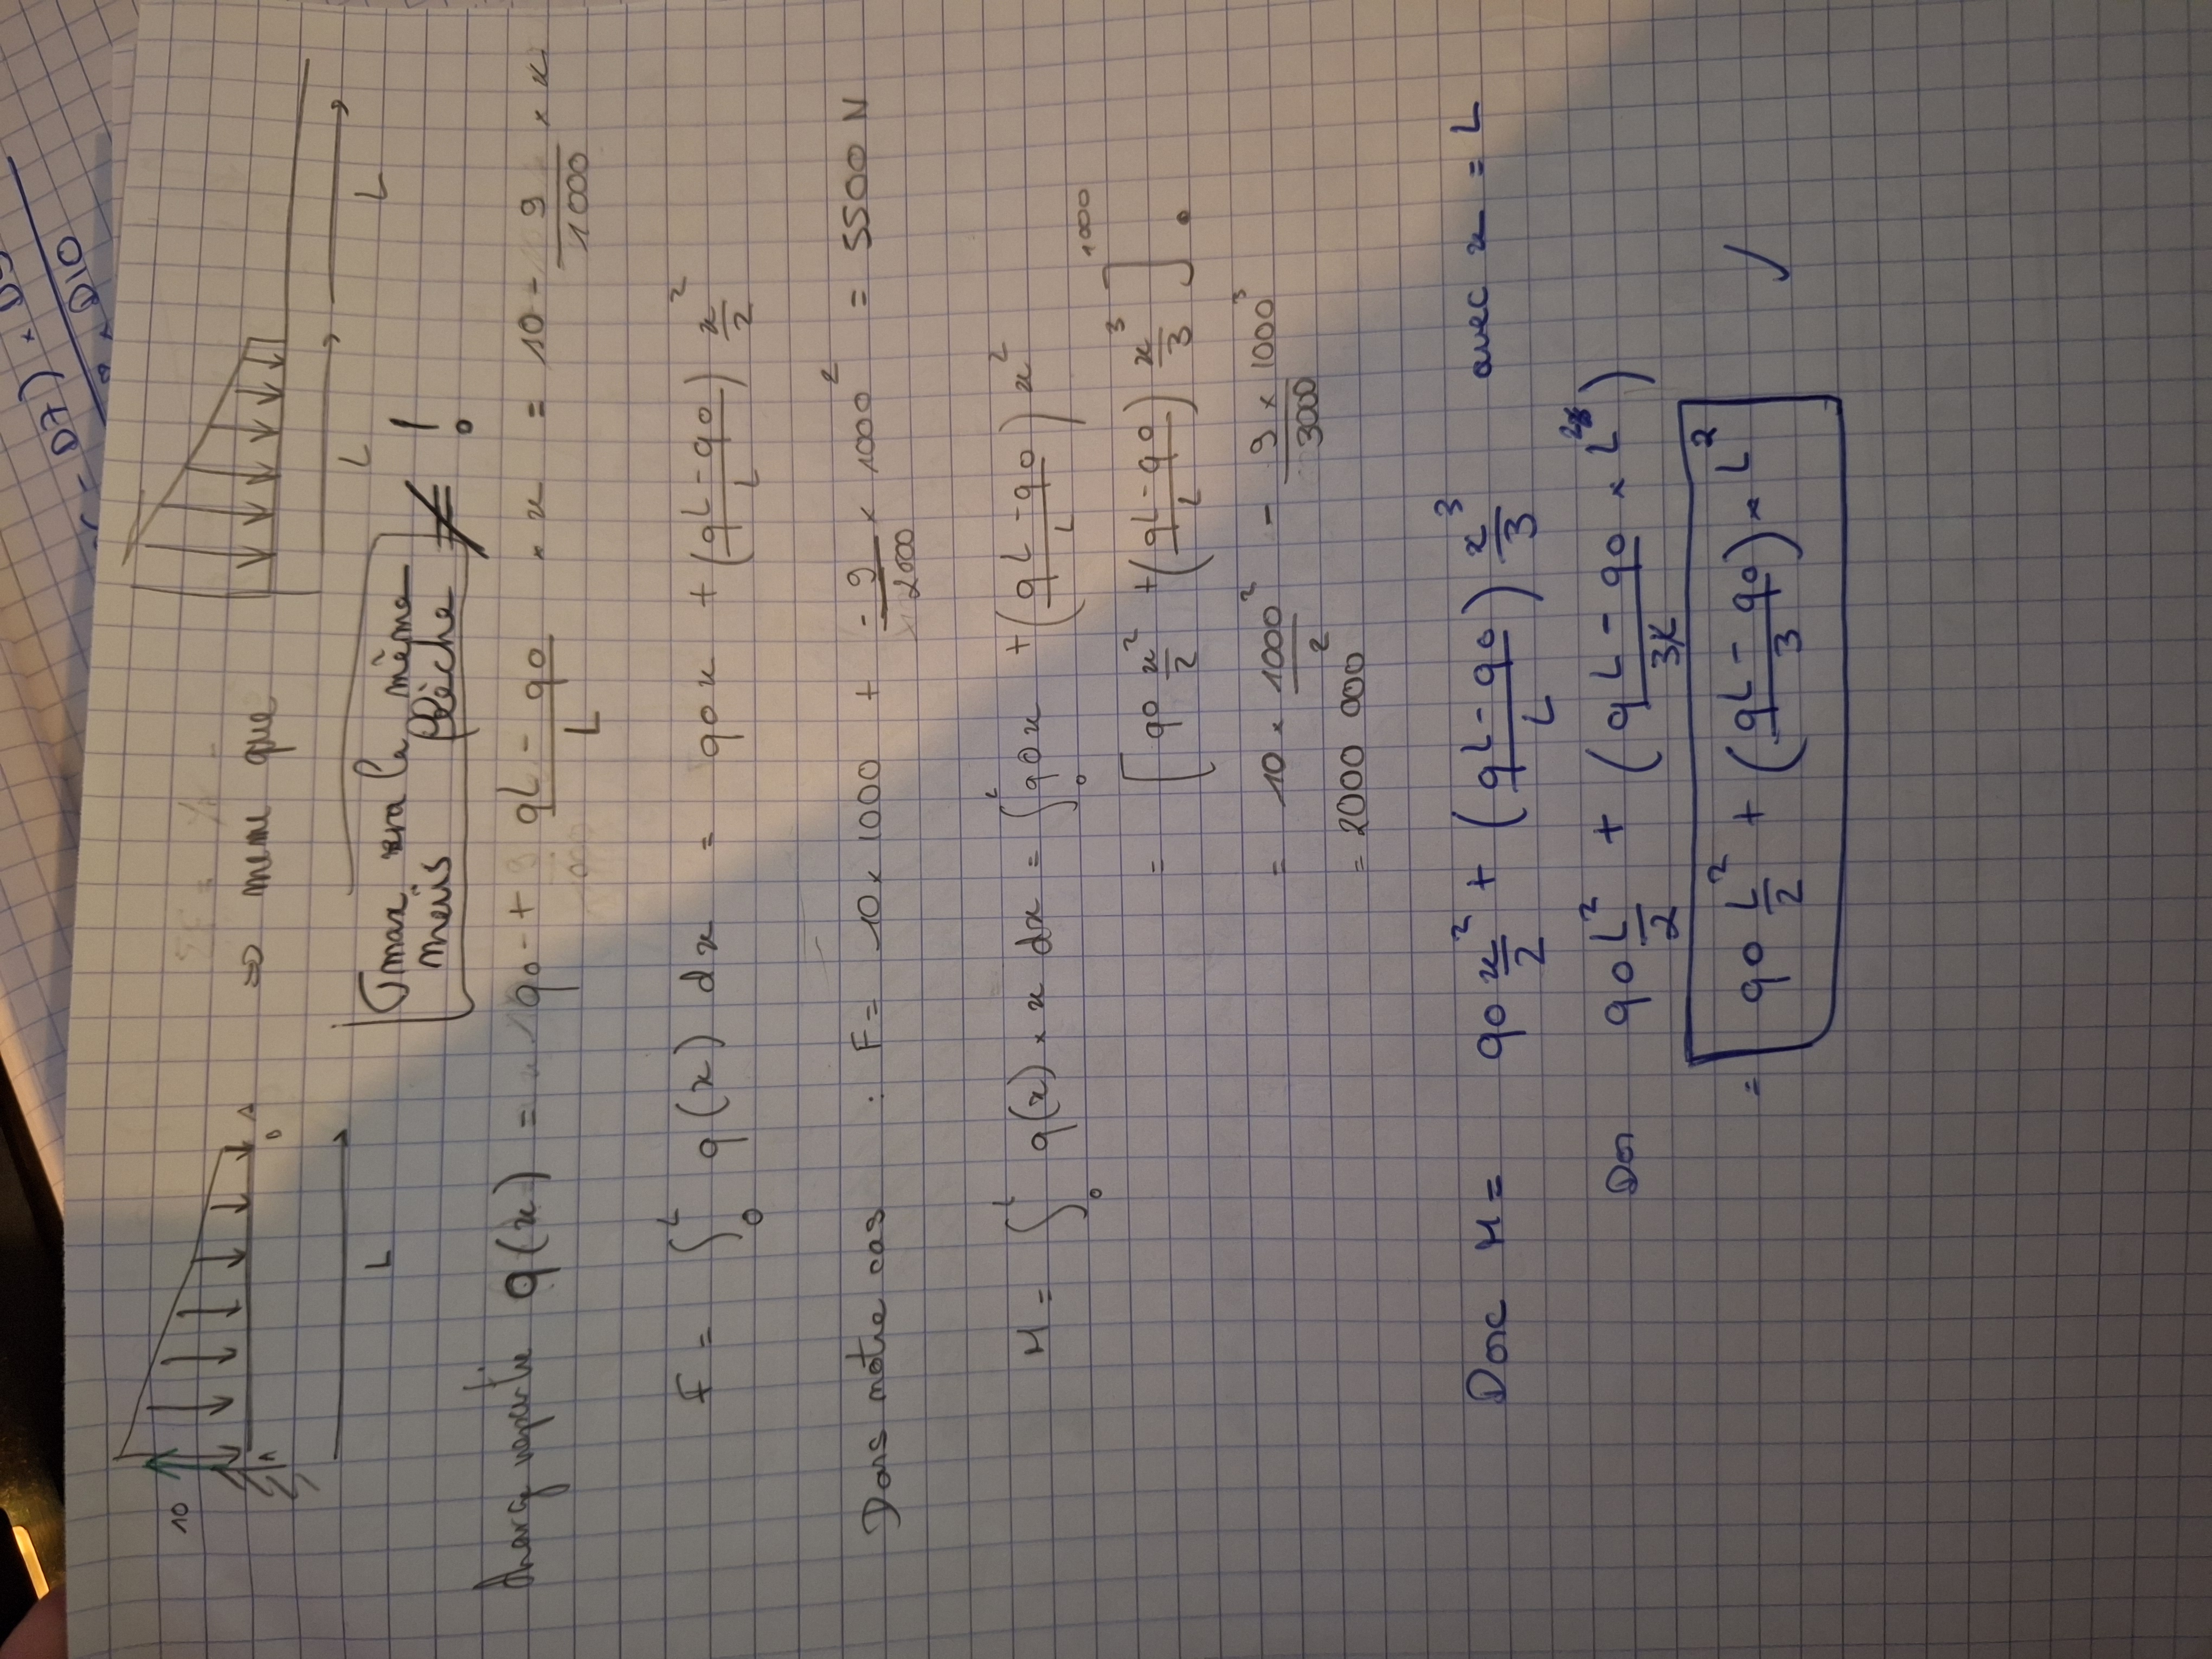 D7) × D9
D10
10
L
⇔ même que
L
L
σmax sera la même
mais flèche ≠ !
charge répartie q(x) = q0 + (qL - q0)/L × x = 10 - 9/1000 × x
F = ∫₀ᴸ q(x) dx = q0x + ((qL - q0)/L) x²/2
Dans notre cas : F = 10 × 1000 + -9/2000 × 1000² = 5500 N
M = ∫₀ᴸ q(x) × x dx = ∫₀ᴸ q0x + ((qL - q0)/L) x²
= [q0 x²/2 + ((qL - q0)/L) x³/3]₀¹⁰⁰⁰
= 10 × 1000²/2 - 9 × 1000³/3000
= 2000 000
Donc M = q0 x²/2 + ((qL - q0)/L) x³/3 avec x = L
Don q0 L²/2 + ((qL - q0)/3L × L²)
= q0 L²/2 + ((qL - q0)/3) × L²